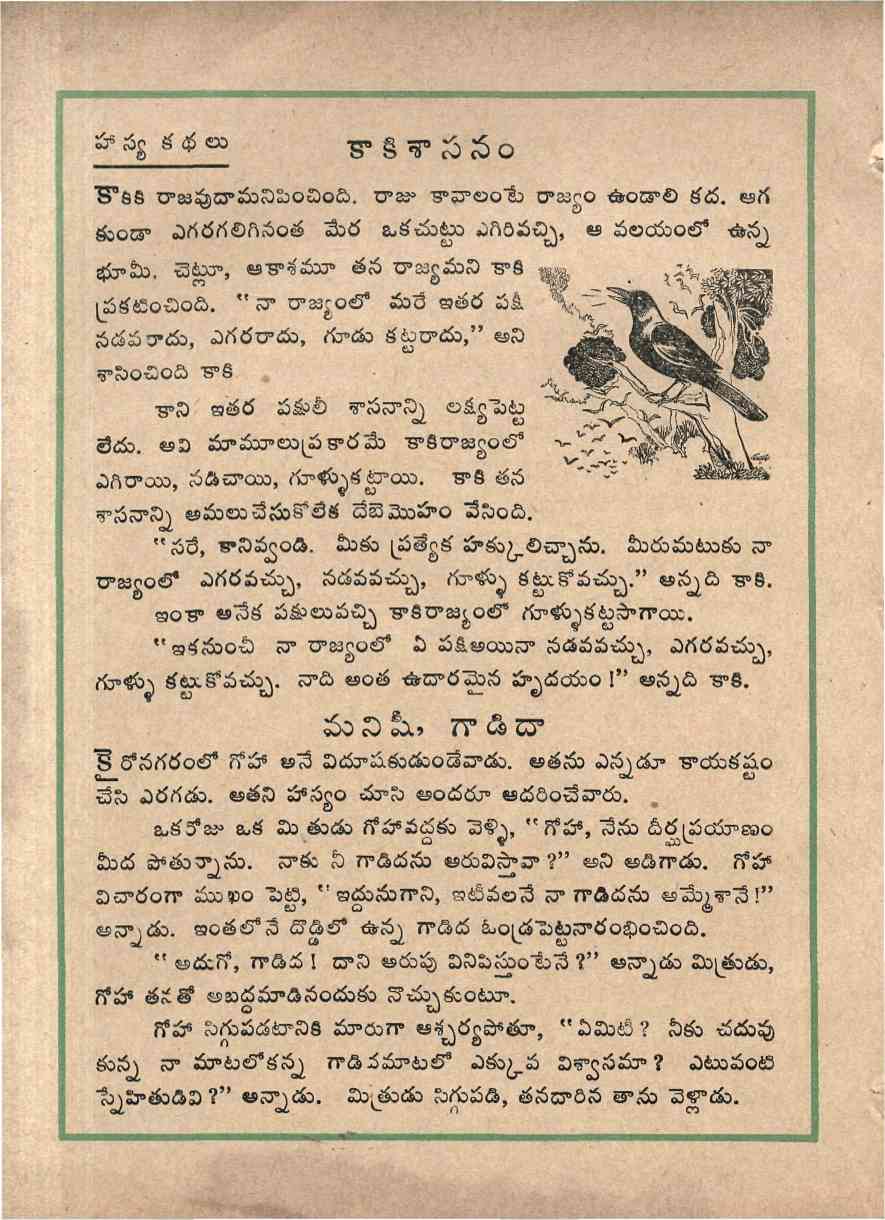 హాస్య కథలు
కాకిశాసనం
కాకికి రాజవుదామనిపించింది. రాజు కావాలంటే రాజ్యం ఉండాలి కద. ఆగ
కుండా ఎగరగలిగినంత మేర ఒకచుట్టు ఎగిరివచ్చి, ఆ వలయంలో ఉన్న
భూమీ, చెట్లూ, ఆకాశమూ తన రాజ్యమని కాకి
ప్రకటించింది. "నా రాజ్యంలో మరే ఇతర పక్షీ
నడవరాదు, ఎగరరాదు, గూడు కట్టరాదు," అని
శాసించింది కాకి
కాని ఇతర పక్షులీ శాసనాన్ని లక్ష్యపెట్ట
లేదు. అవి మామూలుప్రకారమే కాకిరాజ్యంలో
ఎగిరాయి, నడిచాయి, గూళ్ళుకట్టాయి. కాకి తన
శాసనాన్ని అమలుచేసుకోలేక దేబెమొహం వేసింది.
"సరే, కానివ్వండి. మీకు ప్రత్యేక హక్కులిచ్చాను. మీరుమటుకు నా
రాజ్యంలో ఎగరవచ్చు, నడవవచ్చు, గూళ్ళు కట్టుకోవచ్చు." అన్నది కాకి.
ఇంకా అనేక పక్షులువచ్చి కాకిరాజ్యంలో గూళ్ళుకట్టసాగాయి.
"ఇకనుంచీ నా రాజ్యంలో ఏ పక్షిఅయినా నడవవచ్చు, ఎగరవచ్చు,
గూళ్ళు కట్టుకోవచ్చు. నాది అంత ఉదారమైన హృదయం!" అన్నది కాకి.
మనిషీ, గాడిదా
కైరోనగరంలో గోహా అనే విదూషకుడుండేవాడు. అతను ఎన్నడూ కాయకష్టం
చేసి ఎరగడు. అతని హాస్యం చూసి అందరూ ఆదరించేవారు.
ఒకరోజు ఒక మిత్రుడు గోహావద్దకు వెళ్ళి, "గోహా, నేను దీర్ఘప్రయాణం
మీద పోతున్నాను. నాకు నీ గాడిదను అరువిస్తావా?" అని అడిగాడు. గోహా
విచారంగా ముఖం పెట్టి, "ఇద్దునుగాని, ఇటీవలనే నా గాడిదను అమ్మేశానే!"
అన్నాడు. ఇంతలోనే దొడ్డిలో ఉన్న గాడిద ఓండ్రపెట్టనారంభించింది.
"అదుగో, గాడిద! దాని అరుపు వినిపిస్తుంటేనే?" అన్నాడు మిత్రుడు,
గోహా తనతో అబద్ధమాడినందుకు నొచ్చుకుంటూ.
గోహా సిగ్గుపడటానికి మారుగా ఆశ్చర్యపోతూ, "ఏమిటీ? నీకు చదువు
కున్న నా మాటలోకన్న గాడిదమాటలో ఎక్కువ విశ్వాసమా? ఎటువంటి
స్నేహితుడివి?" అన్నాడు. మిత్రుడు సిగ్గుపడి, తనదారిన తాను వెళ్లాడు.